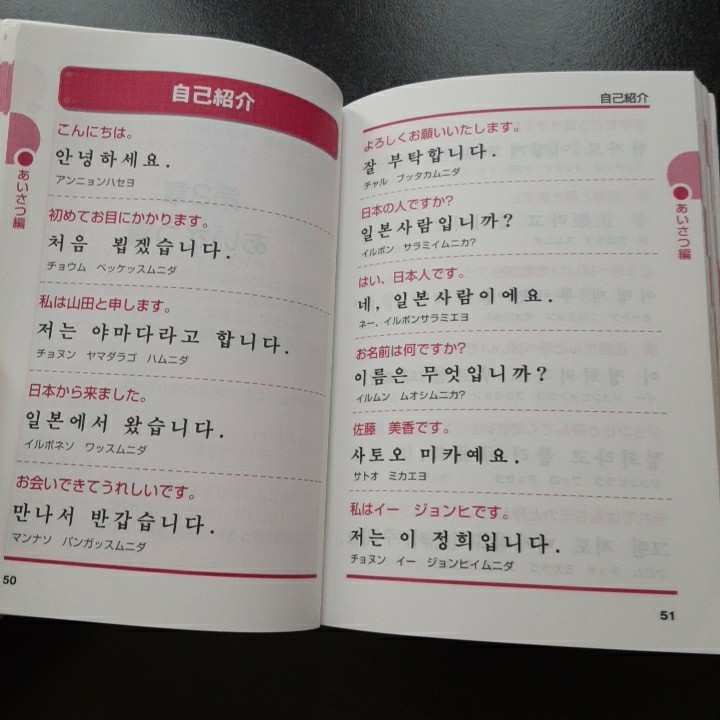 自己紹介
こんにちは。
안녕하세요.
アンニョンハセヨ
初めてお目にかかります。
처음 뵙겠습니다.
チョウム ペッケッスムニダ
私は山田と申します。
저는 야마다라고 합니다.
チョヌン ヤマダラゴ ハムニダ
日本から来ました。
일본에서 왔습니다.
イルボネソ ワッスムニダ
お会いできてうれしいです。
만나서 반갑습니다.
マンナソ パンガッスムニダ
あいさつ編
50
自己紹介
よろしくお願いいたします。
잘 부탁합니다.
チャル ブッタカムニダ
日本の人ですか?
일본사람입니까?
イルボン サラミイムニカ?
はい、日本人です。
네, 일본사람이예요.
ネー、イルボンサラミエヨ
お名前は何ですか?
이름은 무엇입니까?
イルムン ムオシムニカ?
佐藤 美香です。
사토오 미카예요.
サトオ ミカエヨ
私はイー ジョンヒです。
저는 이 정희입니다.
チョヌン イー ジョンヒイムニダ
あいさつ編
51